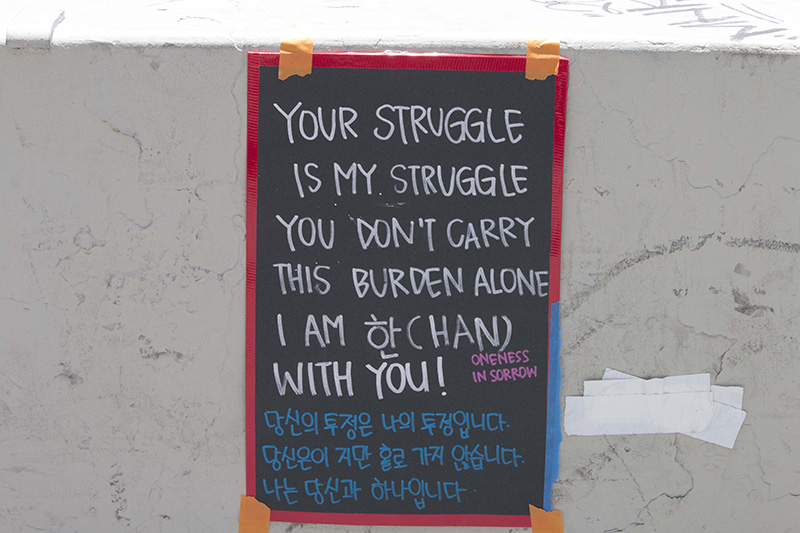 YOUR STRUGGLE
IS MY STRUGGLE
YOU DON'T CARRY
THIS BURDEN ALONE
I AM 한(HAN)
WITH YOU!
ONENESS
IN SORROW
당신의 투정은 나의 투정입니다.
당신은이 지만 홀로 가지 않습니다.
나는 당신과 하나입니다.